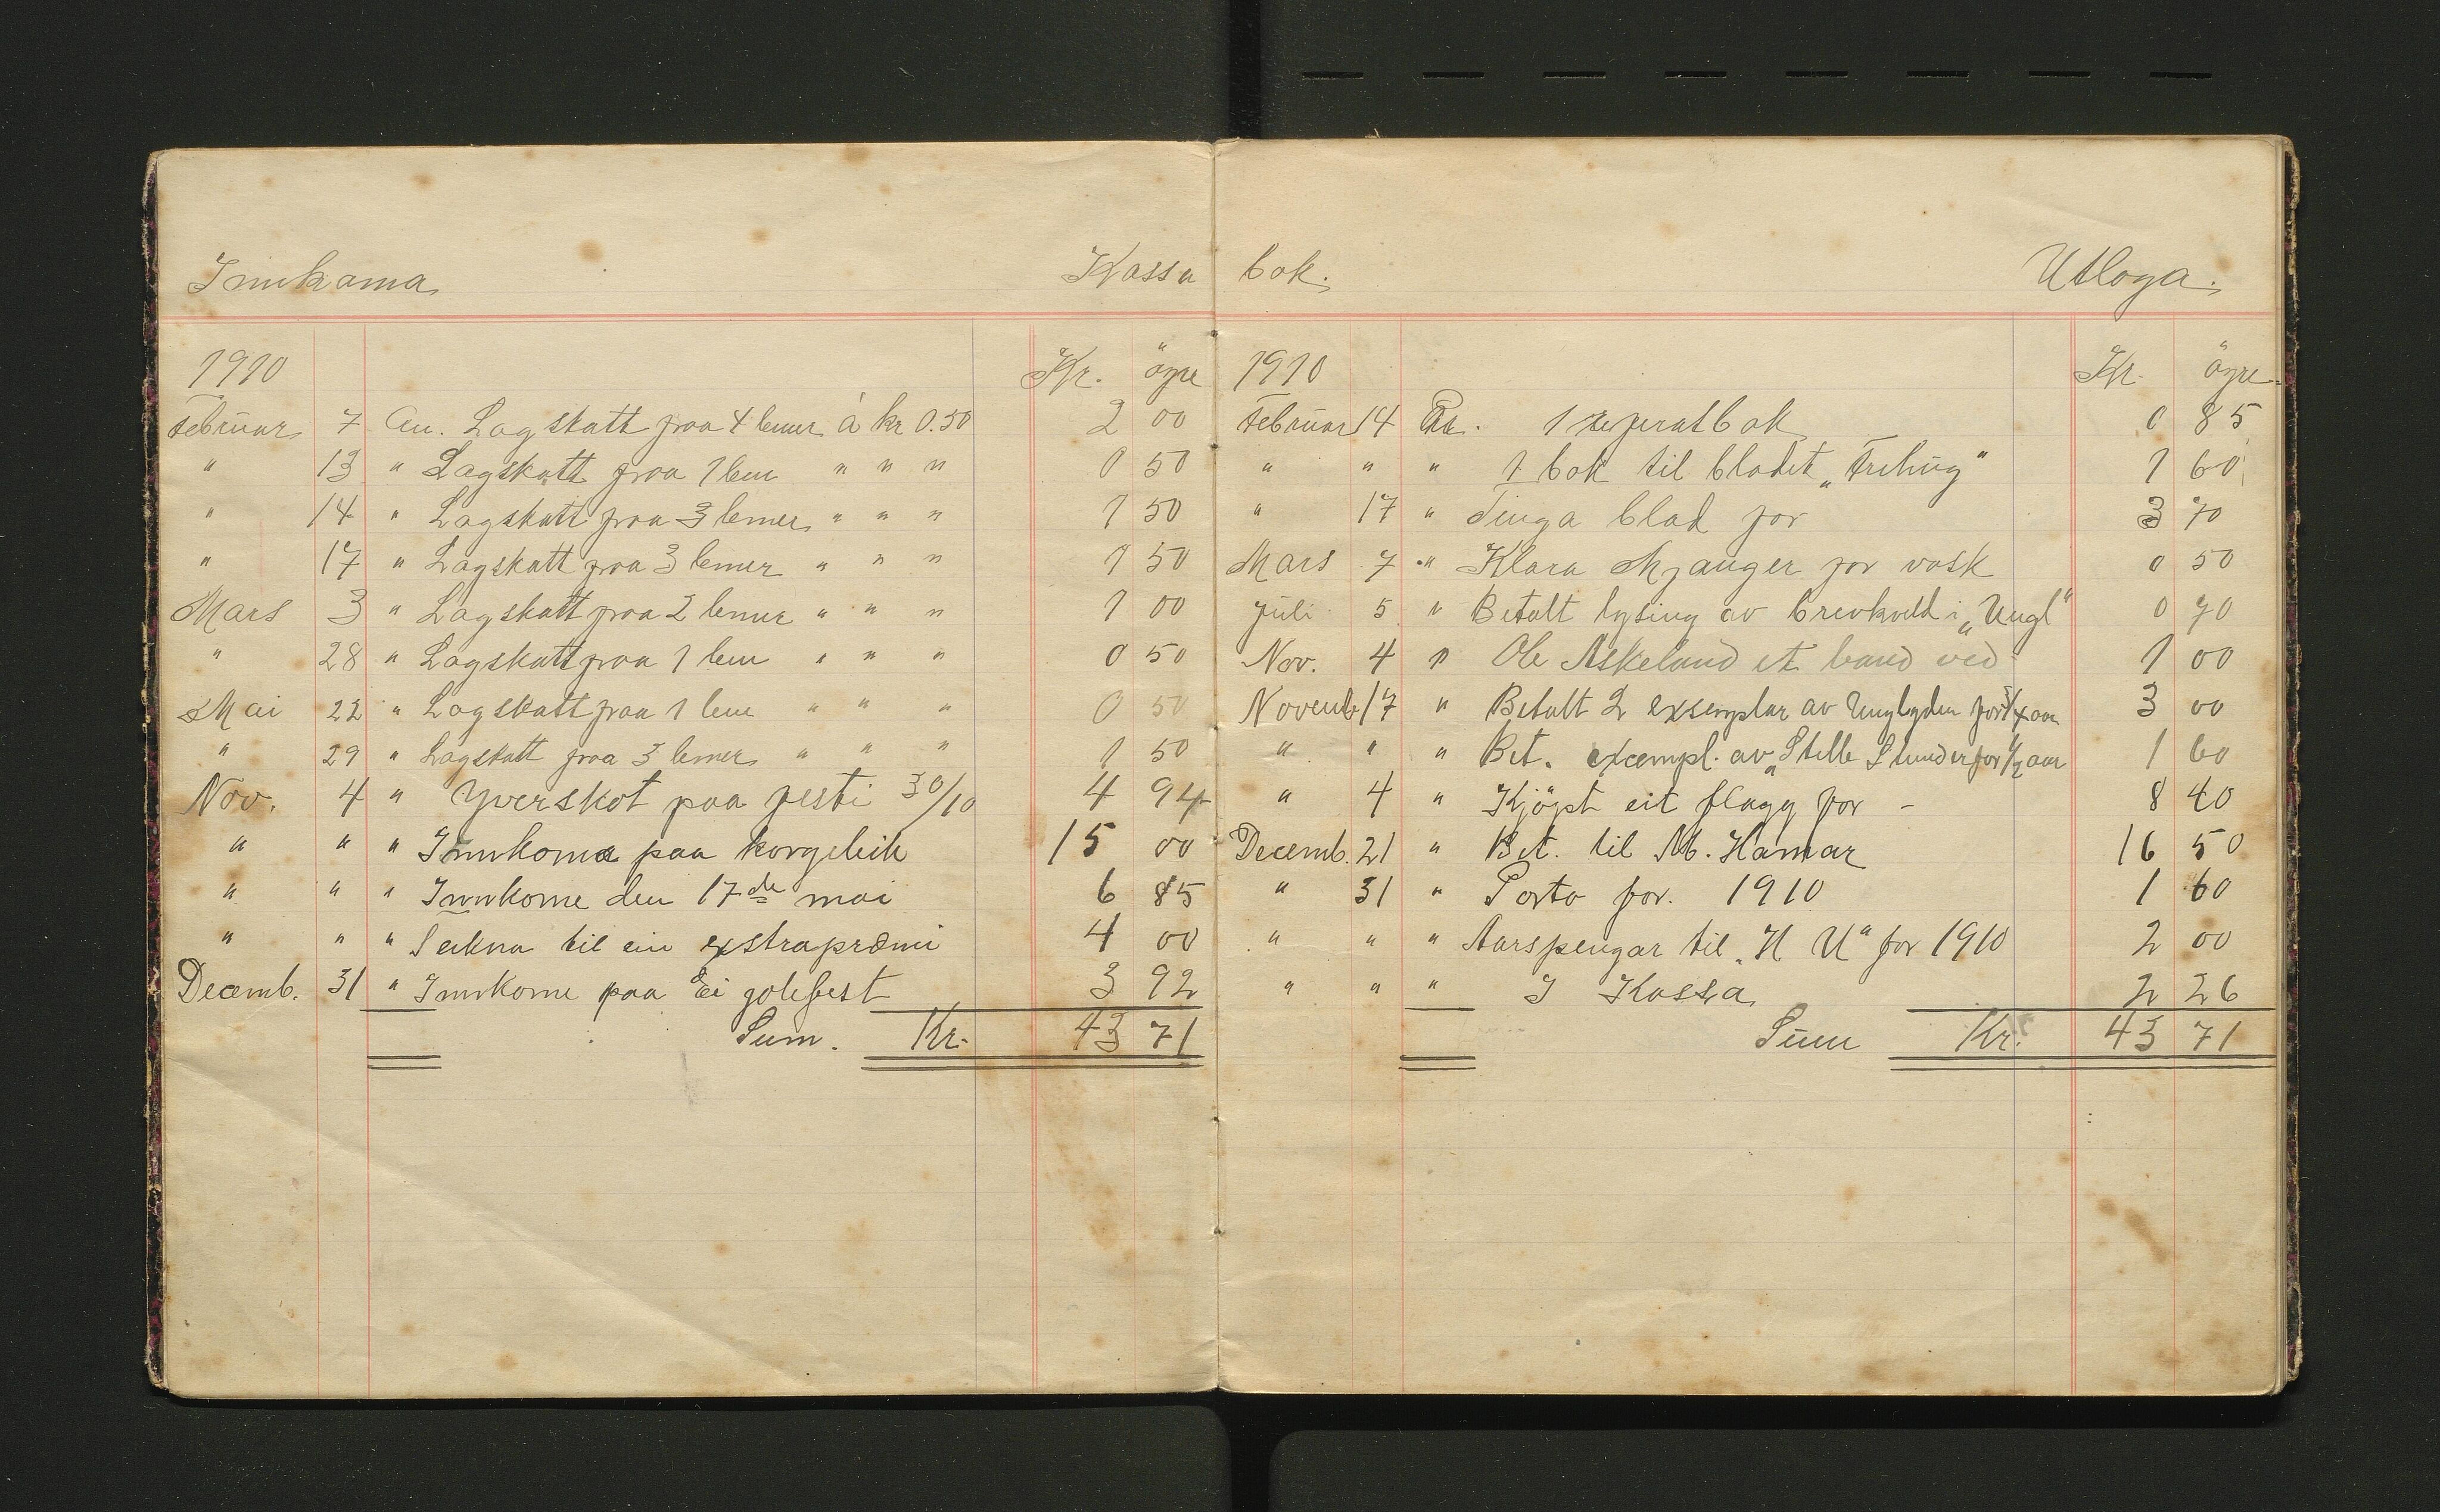 Innkoma
Kassa bok.
Utloga.
1910 Kr. öyre
Februar 7 An. Lagskatt fraa 4 lemer à kr 0.50 2 00
" 13 " Lagskatt fraa 1 lem " " " 0 50
" 14 " Lagskatt fraa 3 lemer " " " 1 50
" 17 " Lagskatt fraa 3 lemer " " " 1 50
Mars 3 " Lagskatt fraa 2 lemer " " " 1 00
" 28 " Lagskatt fraa 1 lem " " " 0 50
Mai 22 " Lagskatt fraa 1 lem " " " 0 50
" 29 " Lagskatt fraa 3 lemer " " " 1 50
Nov. 4 " Yverskot paa festi 30/10 4 94
" " " Innkome paa korgeleik 15 00
" " " Innkome den 17de mai 6 85
" " " Seikna til ein exstrapræmi 4 00
Decemb. 31 " Innkome paa Ei golefest 3 92
Sum. Kr. 43 71
1910 Kr. öyre
Februar 14 1 referatbok 0 85
" " " 1 bok til bladet „Frihug" 1 60
" 17 " Tinga blad for 3 70
Mars 7 " Klara Mjanger for vask 0 50
Juli 5 " Betalt lysing av brevkveld i „Ungl" 0 70
Nov. 4 " Ole Askeland et band ved 1 00
Novemb 17 " Betalt 2 exsemplar av Unglyden for 1/4 aar 3 00
" " " Bet. excempl. av „Stille Stunder for 1/2 aar 1 60
" 4 " Kjöpt eit flagg for - 8 40
Decemb. 21 " Bet. til M. Hamar 16 50
" 31 " Porto for. 1910 1 60
" " " Aarspengar til „H U" for 1910 2 00
" " " I Kassa 2 26
Sum Kr. 43 71